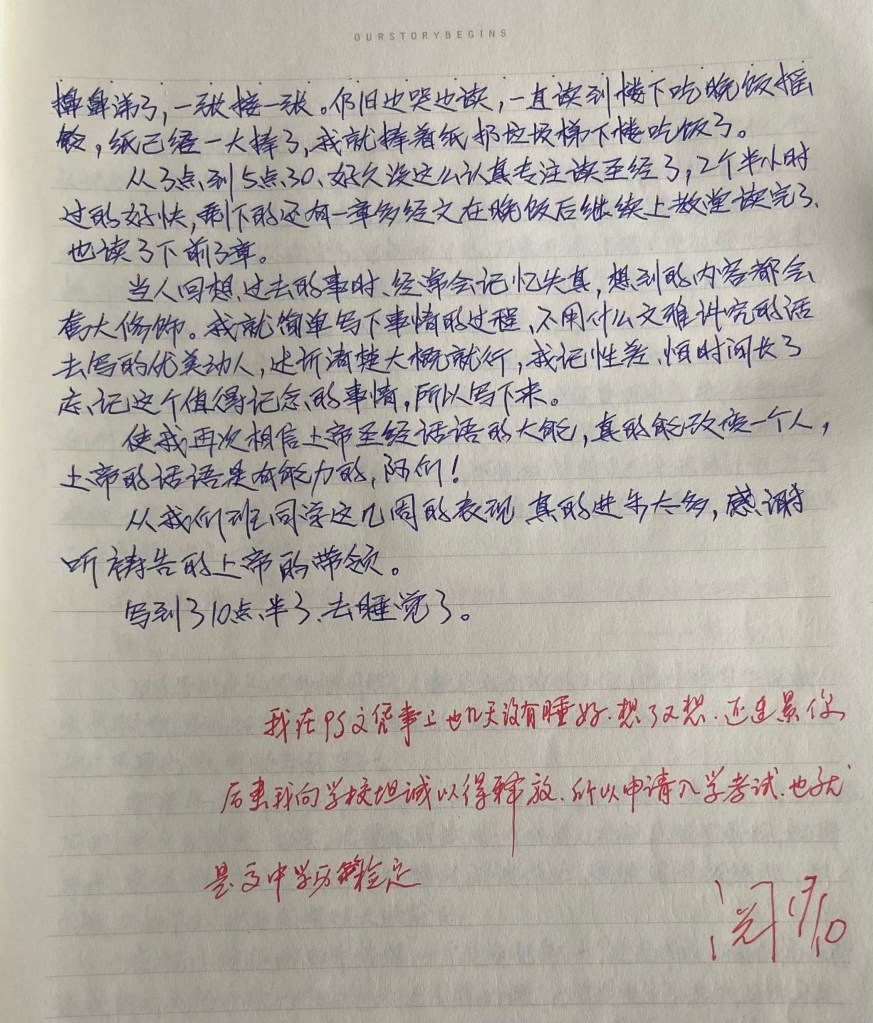 OURSTORYBEGINS
擤鼻涕了，一张接一张。仍旧边哭边读，一直读到楼下吃晚饭摇
铃，纸已经一大捧了，我就捧着纸扔垃圾梯下楼吃饭了。
从3点到5点30、好久没这么认真专注读圣经了，2个半小时
过的好快，剩下的还有一章多经文在晚饭后继续上教堂读完了、
也读了下前3章。
当人回想过去的事时、经常会记忆失真，想到的内容都会
夸大修饰。我就简单写下事情的过程、不用什么文雅讲究的话
去写的优美动人，述诉清楚大概就行，我记性差、怕时间长了
忘记这个值得记念的事情，所以写下来。
使我再次相信上帝圣经话语的大能，真的能改变一个人，
上帝的话语是有能力的，阿们！
从我们班同学这几周的表现 真的进步太多，感谢
听祷告的上帝的带领。
写到了10点半了、去睡觉了。
我在PS文凭事上也几天没有睡好.想了又想.还连累你
后来我向学校坦诚以得释放.所以申请入学考试.也就
是高中学历检定
阅 19/10